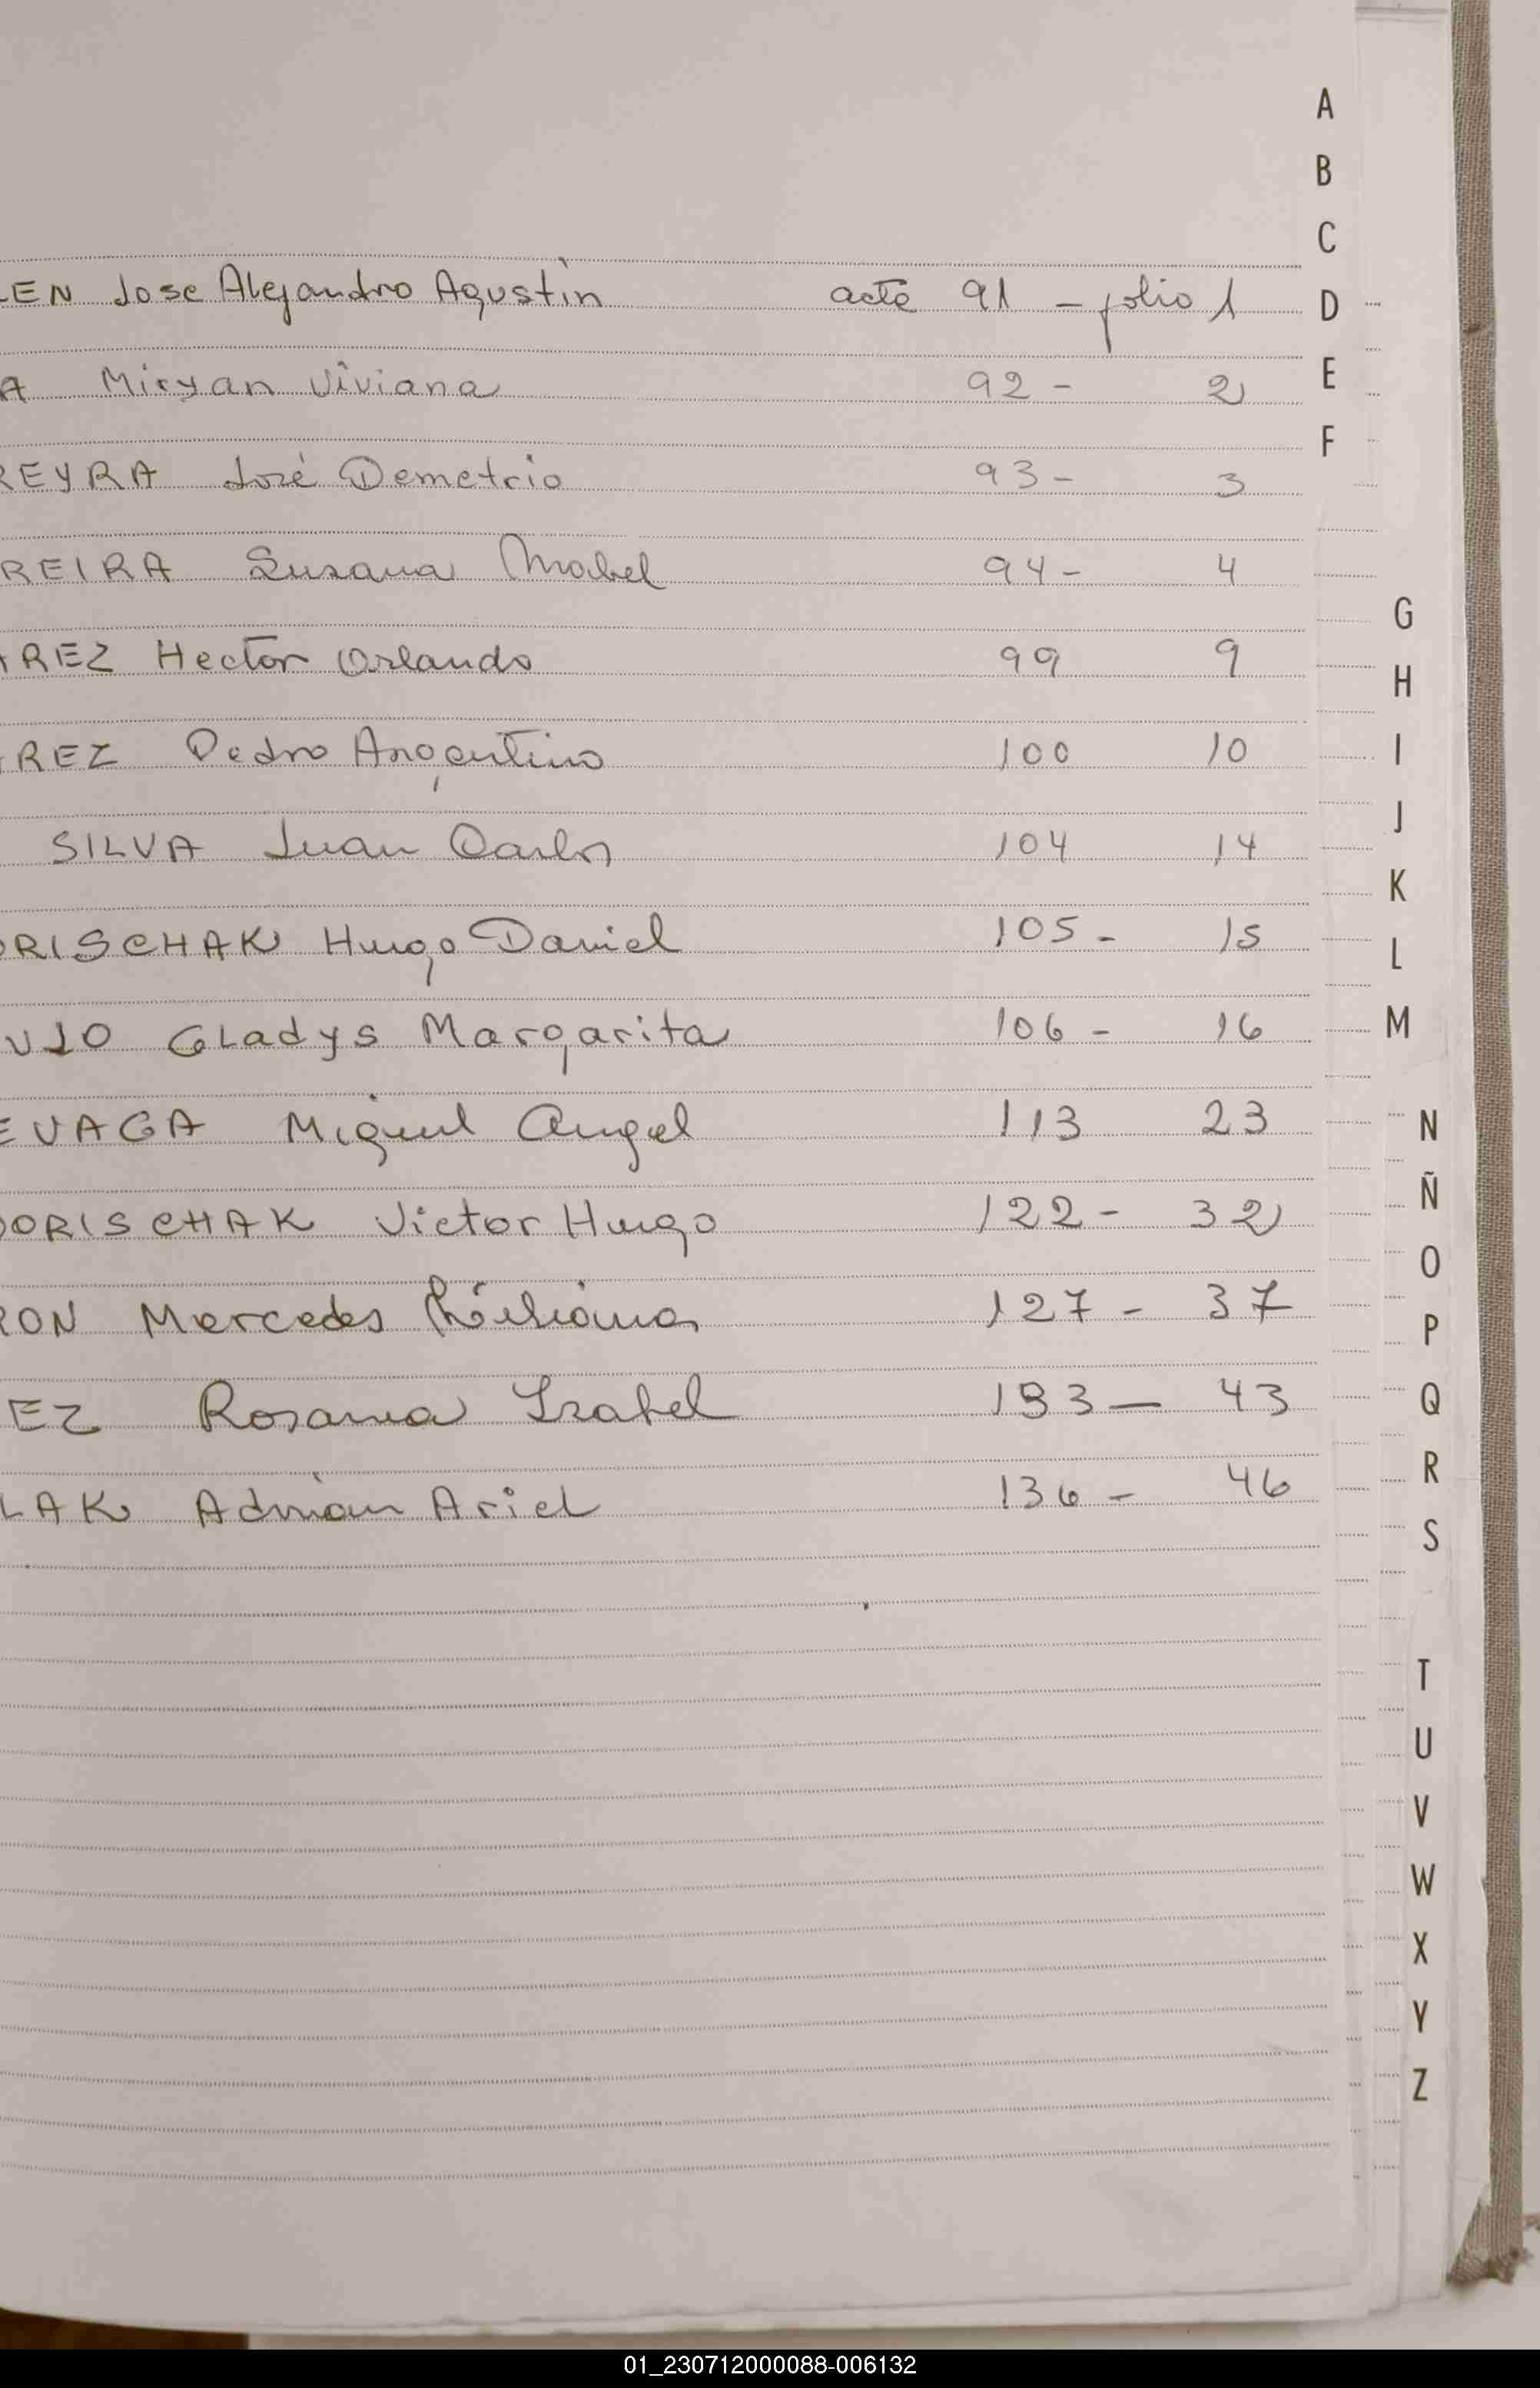 LEN Jose Alejandro Agustin acta 91 - folio 1
A Miryan Viviana 92 - 2
REYRA José Demetrio 93 - 3
REIRA Susana Mabel 94 - 4
AREZ Hector Orlando 99 9
REZ Pedro Argentino 100 10
SILVA Juan Carlos 104 14
ORISCHAK Hugo Daniel 105 - 15
UJO Gladys Margarita 106 - 16
EVAGA Miguel Angel 113 23
DORISCHAK Victor Hugo 122 - 32
RON Mercedes 127 - 37
EZ Rosana Isabel 133 - 43
LAK Adrian Ariel 136 - 46
A
B
C
D
E
F
G
H
I
J
K
L
M
N
Ñ
O
P
Q
R
S
T
U
V
W
X
Y
Z
01_230712000088-006132